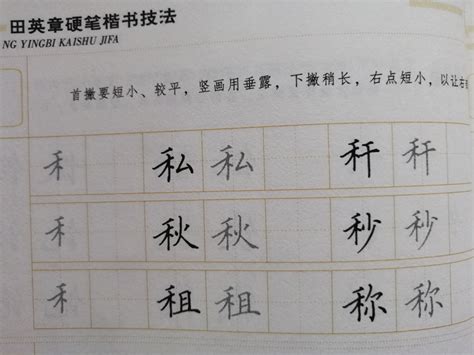 田英章硬笔楷书技法
NG YINGBI KAISHU JIFA
首撇要短小、较平，竖画用垂露，下撇稍长，右点短小，以让右
禾 私 私 秆 秆
禾 秋 秋 秒 秒
禾 租 租 称 称